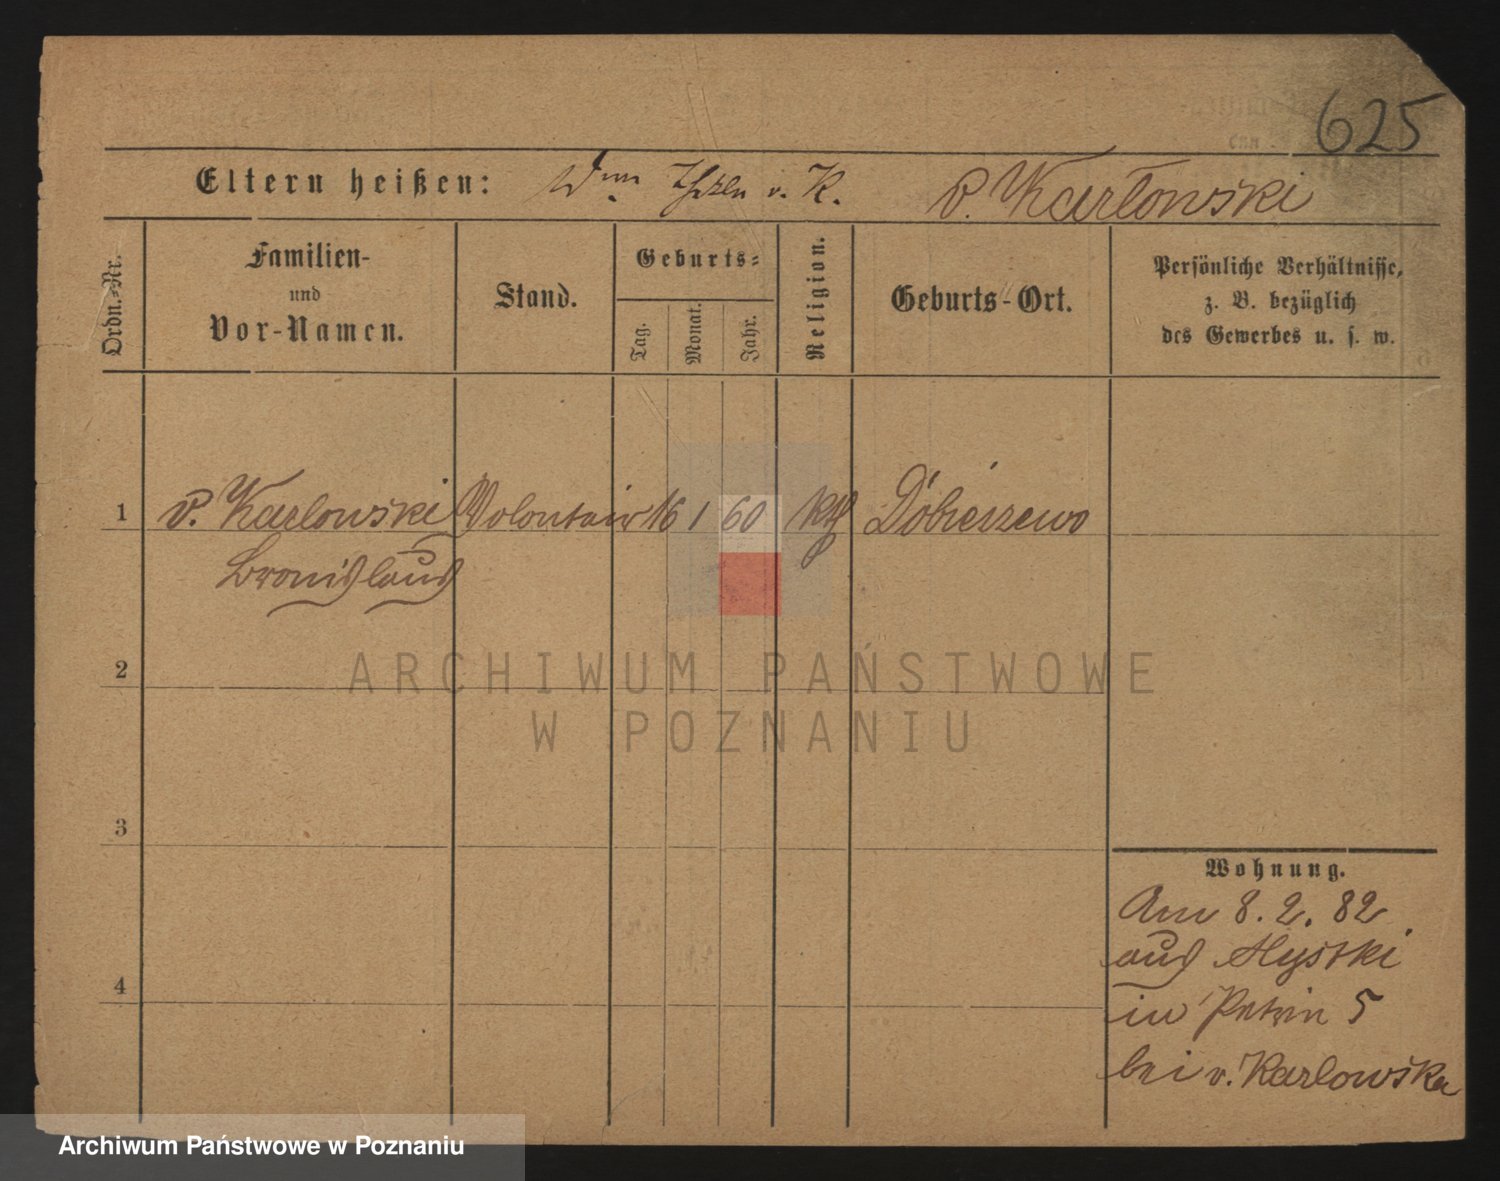 625
Eltern heißen: v. Karłowski
Ordn.-Nr.
Familien-
und
Vor-Namen.
Stand.
Geburts-
Tag.
Monat.
Jahr.
Religion.
Geburts-Ort.
Persönliche Verhältnisse,
z. B. bezüglich
des Gewerbes u. s. w.
1 v. Karlowski Volontair 16 1 60 kth Dobieszewo
Bronislaus
2
3
4
Wohnung.
Am 8. 2. 82
aus
in 5
bei v. Karlowska
ARCHIWUM PAŃSTWOWE
W POZNANIU
Archiwum Państwowe w Poznaniu